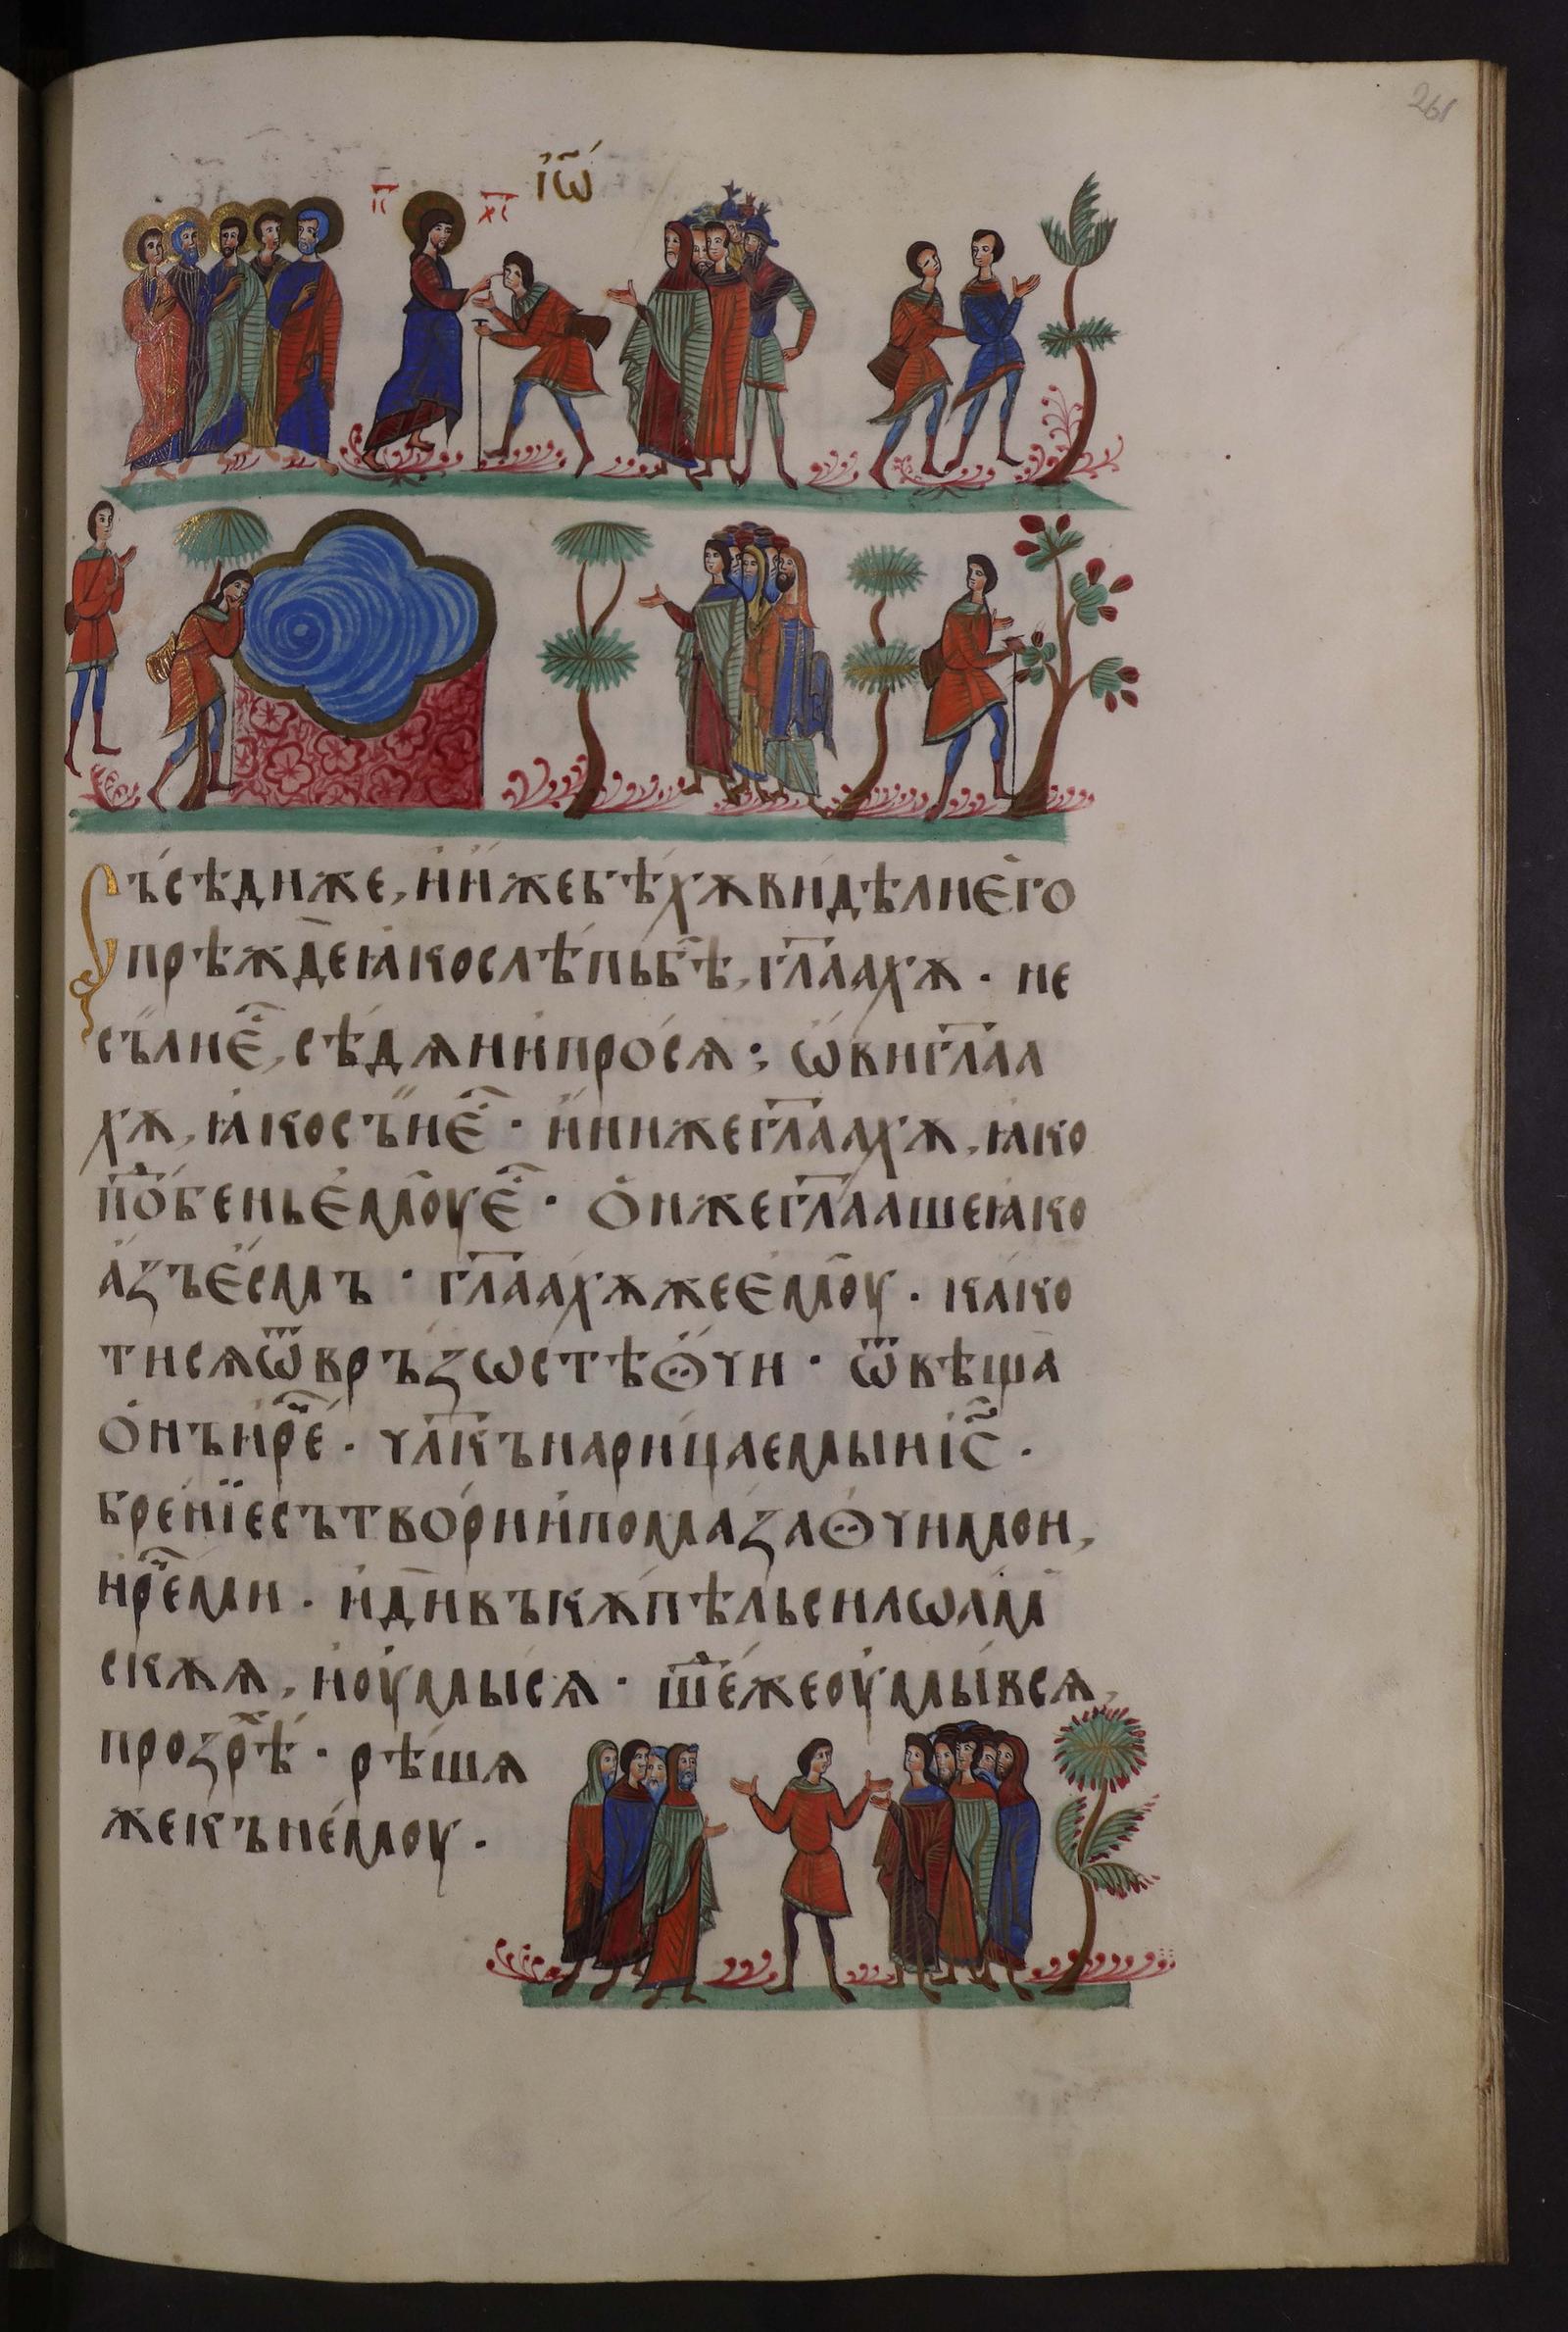 261
іѡ҃
іс҃ хс҃
Съсѣди же, и иже бѣхѫ видѣли его
прѣжⷣе ꙗко слѣпь бѣ, гл҃аахѫ · не
съ ли еⷭ҇, сѣдѧи и просѧ ⁖ ѡви гл҃аа
хѫ, ꙗко съи еⷭ҇ · ини же гл҃аахѫ, ꙗко
поⷣбень емоу еⷭ҇ · Ѻн же гл҃ааше ꙗко
азъ есмъ · гл҃аахѫ же емоу · како
ти сѧ ѿвръзостѣ ꙭчи · ѿвѣща
ѻнъ и реⷱ҇ · чл҃къ нарицаемыи іс҃ ·
брѣніе сътвори и помаза ꙭчи мои,
и реⷱ҇ ми · иди въ кѫпѣль силѡам
скѫѧ, и оумыи сѧ · шеⷣ же оумыв сѧ,
прозрⷯѣ · рѣшѧ
же къ немоу ·